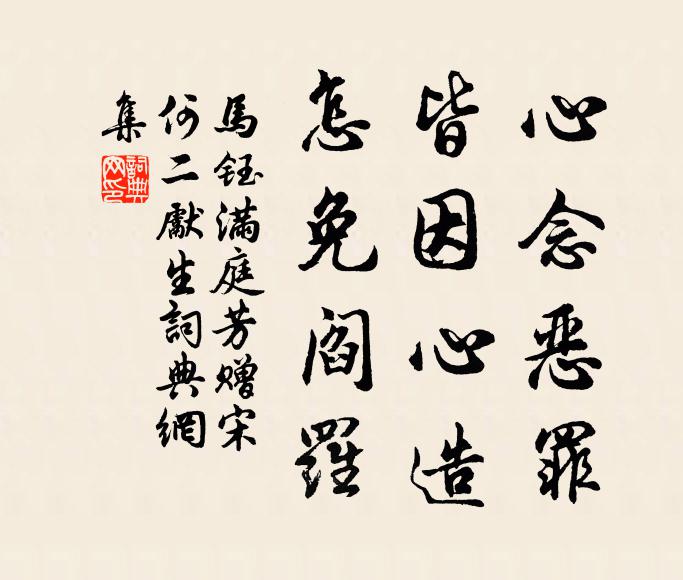 心念恶罪
皆因心造
怎免阎羅
馬鈺满庭芳赠宋
何二獻生詞典網
集
詞典
网印